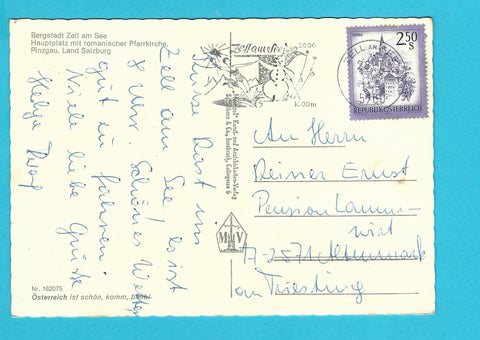 Bergstadt Zell am See
Hauptplatz mit romanischer Pfarrkirche,
Pinzgau, Land Salzburg
Zell am See
2000
1000m
ZELL AM
2.50
S
REPUBLIK ÖSTERREICH
Kurze Rast im
Zell am See. Es ist
8 Uhr. Schönes Wetter
gut im fahren.
Viele liebe Grüße
Helga
An Herrn
Reiner Ernst
Pension Lamm-
wirt
A-2571 Altenmark
an Triesting
Kunst- und Ansichtskarten-Verlag
Innsbruck
M V
Nr. 162075
Österreich ist schön, komm, bleib!